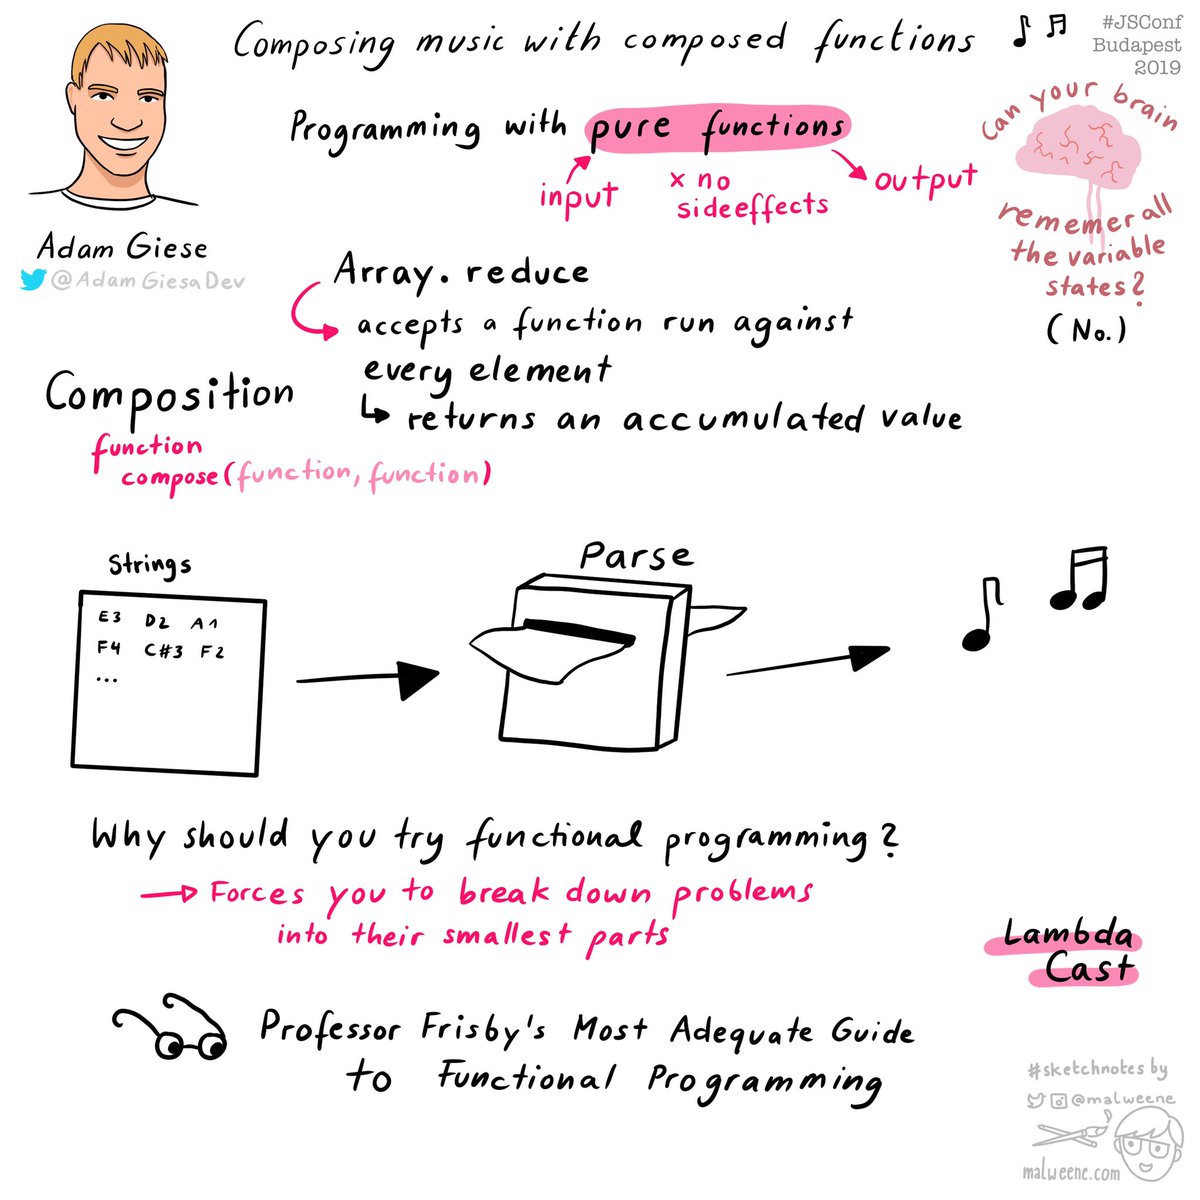 Composing music with composed functions
#JSConf
Budapest
2019
Programming with pure functions
input
x no
sideeffects
output
can your brain
rememer all
the variable
states?
(No.)
Adam Giese
@AdamGiesaDev
Array.reduce
accepts a function run against
every element
returns an accumulated value
Composition
function
compose(function, function)
Strings
E3 D2 A1
F4 C#3 F2
...
Parse
Why should you try functional programming?
Forces you to break down problems
into their smallest parts
Lambda
Cast
Professor Frisby's Most Adequate Guide
to Functional Programming
#sketchnotes by
@malweene
malweene.com